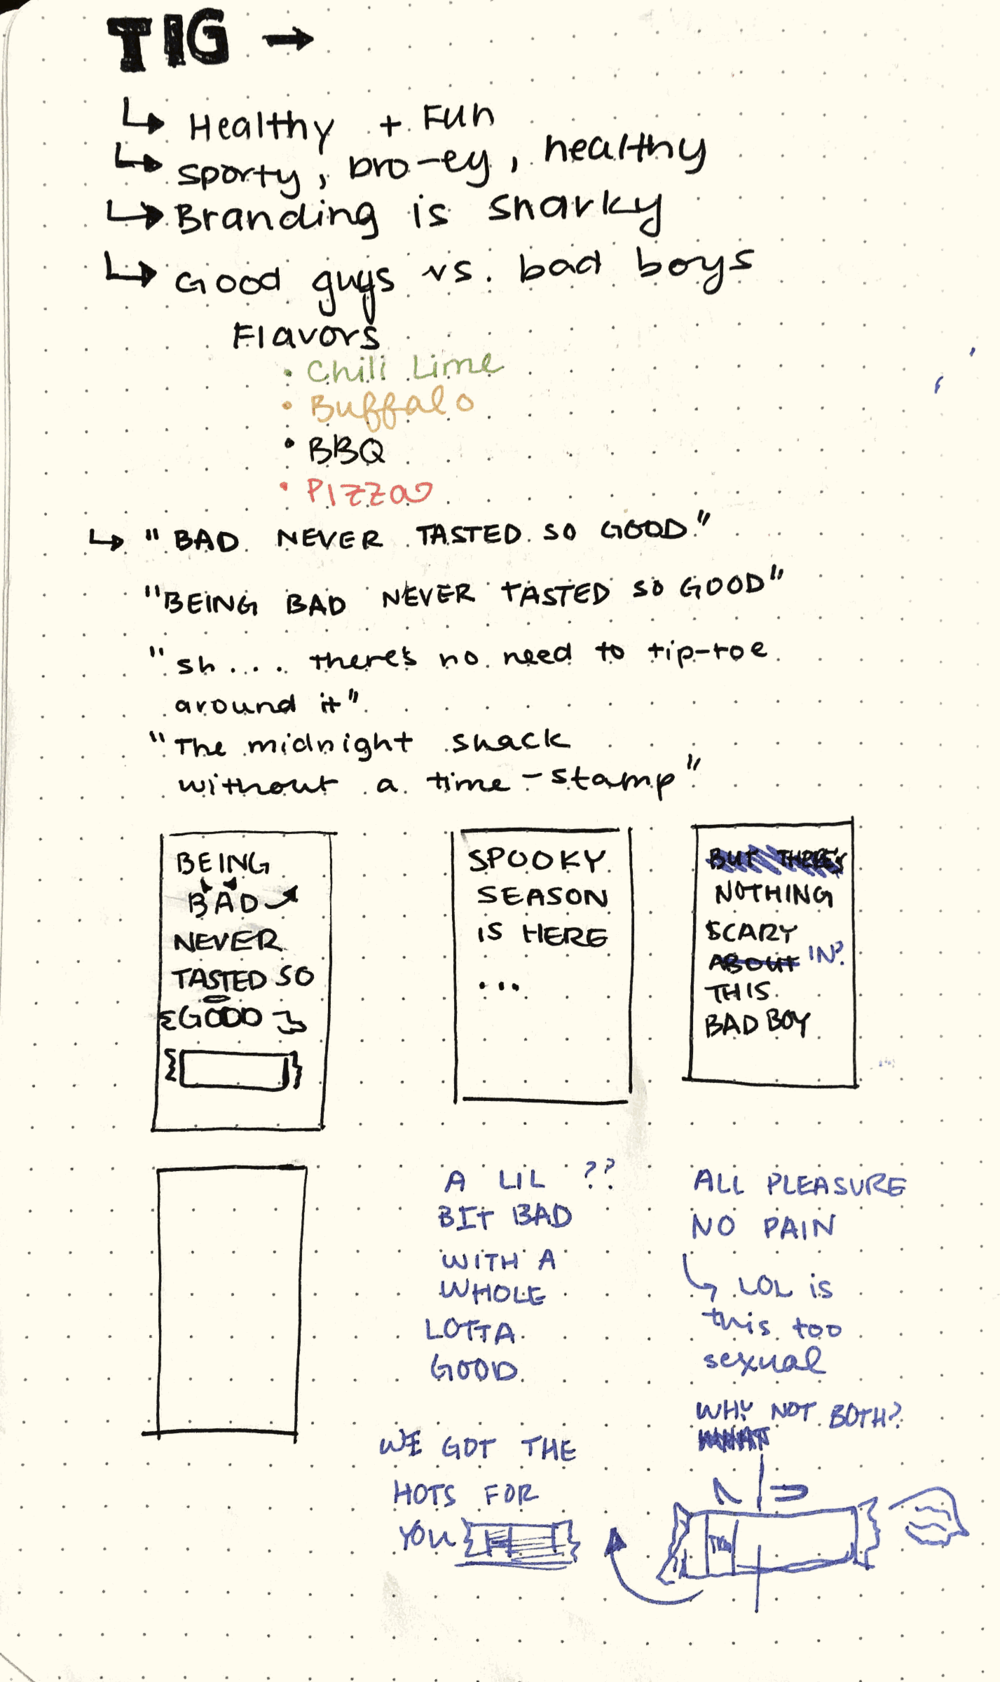 TIG →
↳ Healthy + Fun
↳ sporty, bro-ey, healthy
↳ Branding is snarky
↳ Good guys vs. bad boys
Flavors
• Chili Lime
• Buffalo
• BBQ
• Pizza
↳ "BAD NEVER TASTED SO GOOD"
"BEING BAD NEVER TASTED SO GOOD"
"sh.... there's no need to tip-toe
around it"
"The midnight snack
without a time-stamp"
BEING
BAD
NEVER
TASTED SO
GOOD
SPOOKY
SEASON
IS HERE
...
BUT THERE'S
NOTHING
SCARY
ABOUT IN?
THIS
BAD BOY
A LIL ??
BIT BAD
WITH A
WHOLE
LOTTA
GOOD
ALL PLEASURE
NO PAIN
↳ LOL is
this too
sexual
WHY NOT BOTH?
WHAT
WE GOT THE
HOTS FOR
YOU